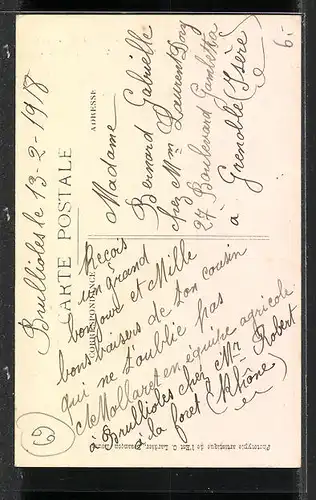 Brullioles le 13-2-1918
CARTE POSTALE
CORRESPONDANCE
ADRESSE
Reçois
un grand
bonjour et Mille
bons baisers de ton cousin
qui ne t'oublie pas
C Mollaret en équipe agricole
à Brullioles chez Mr Robert
à la foret (Rhône)
Madame
Bernard Gabrielle
chez Mme Laurent
27 Boulevard Gambetta
à
Grenoble (Isère)
6.-
Phototypie artistique de l'Est